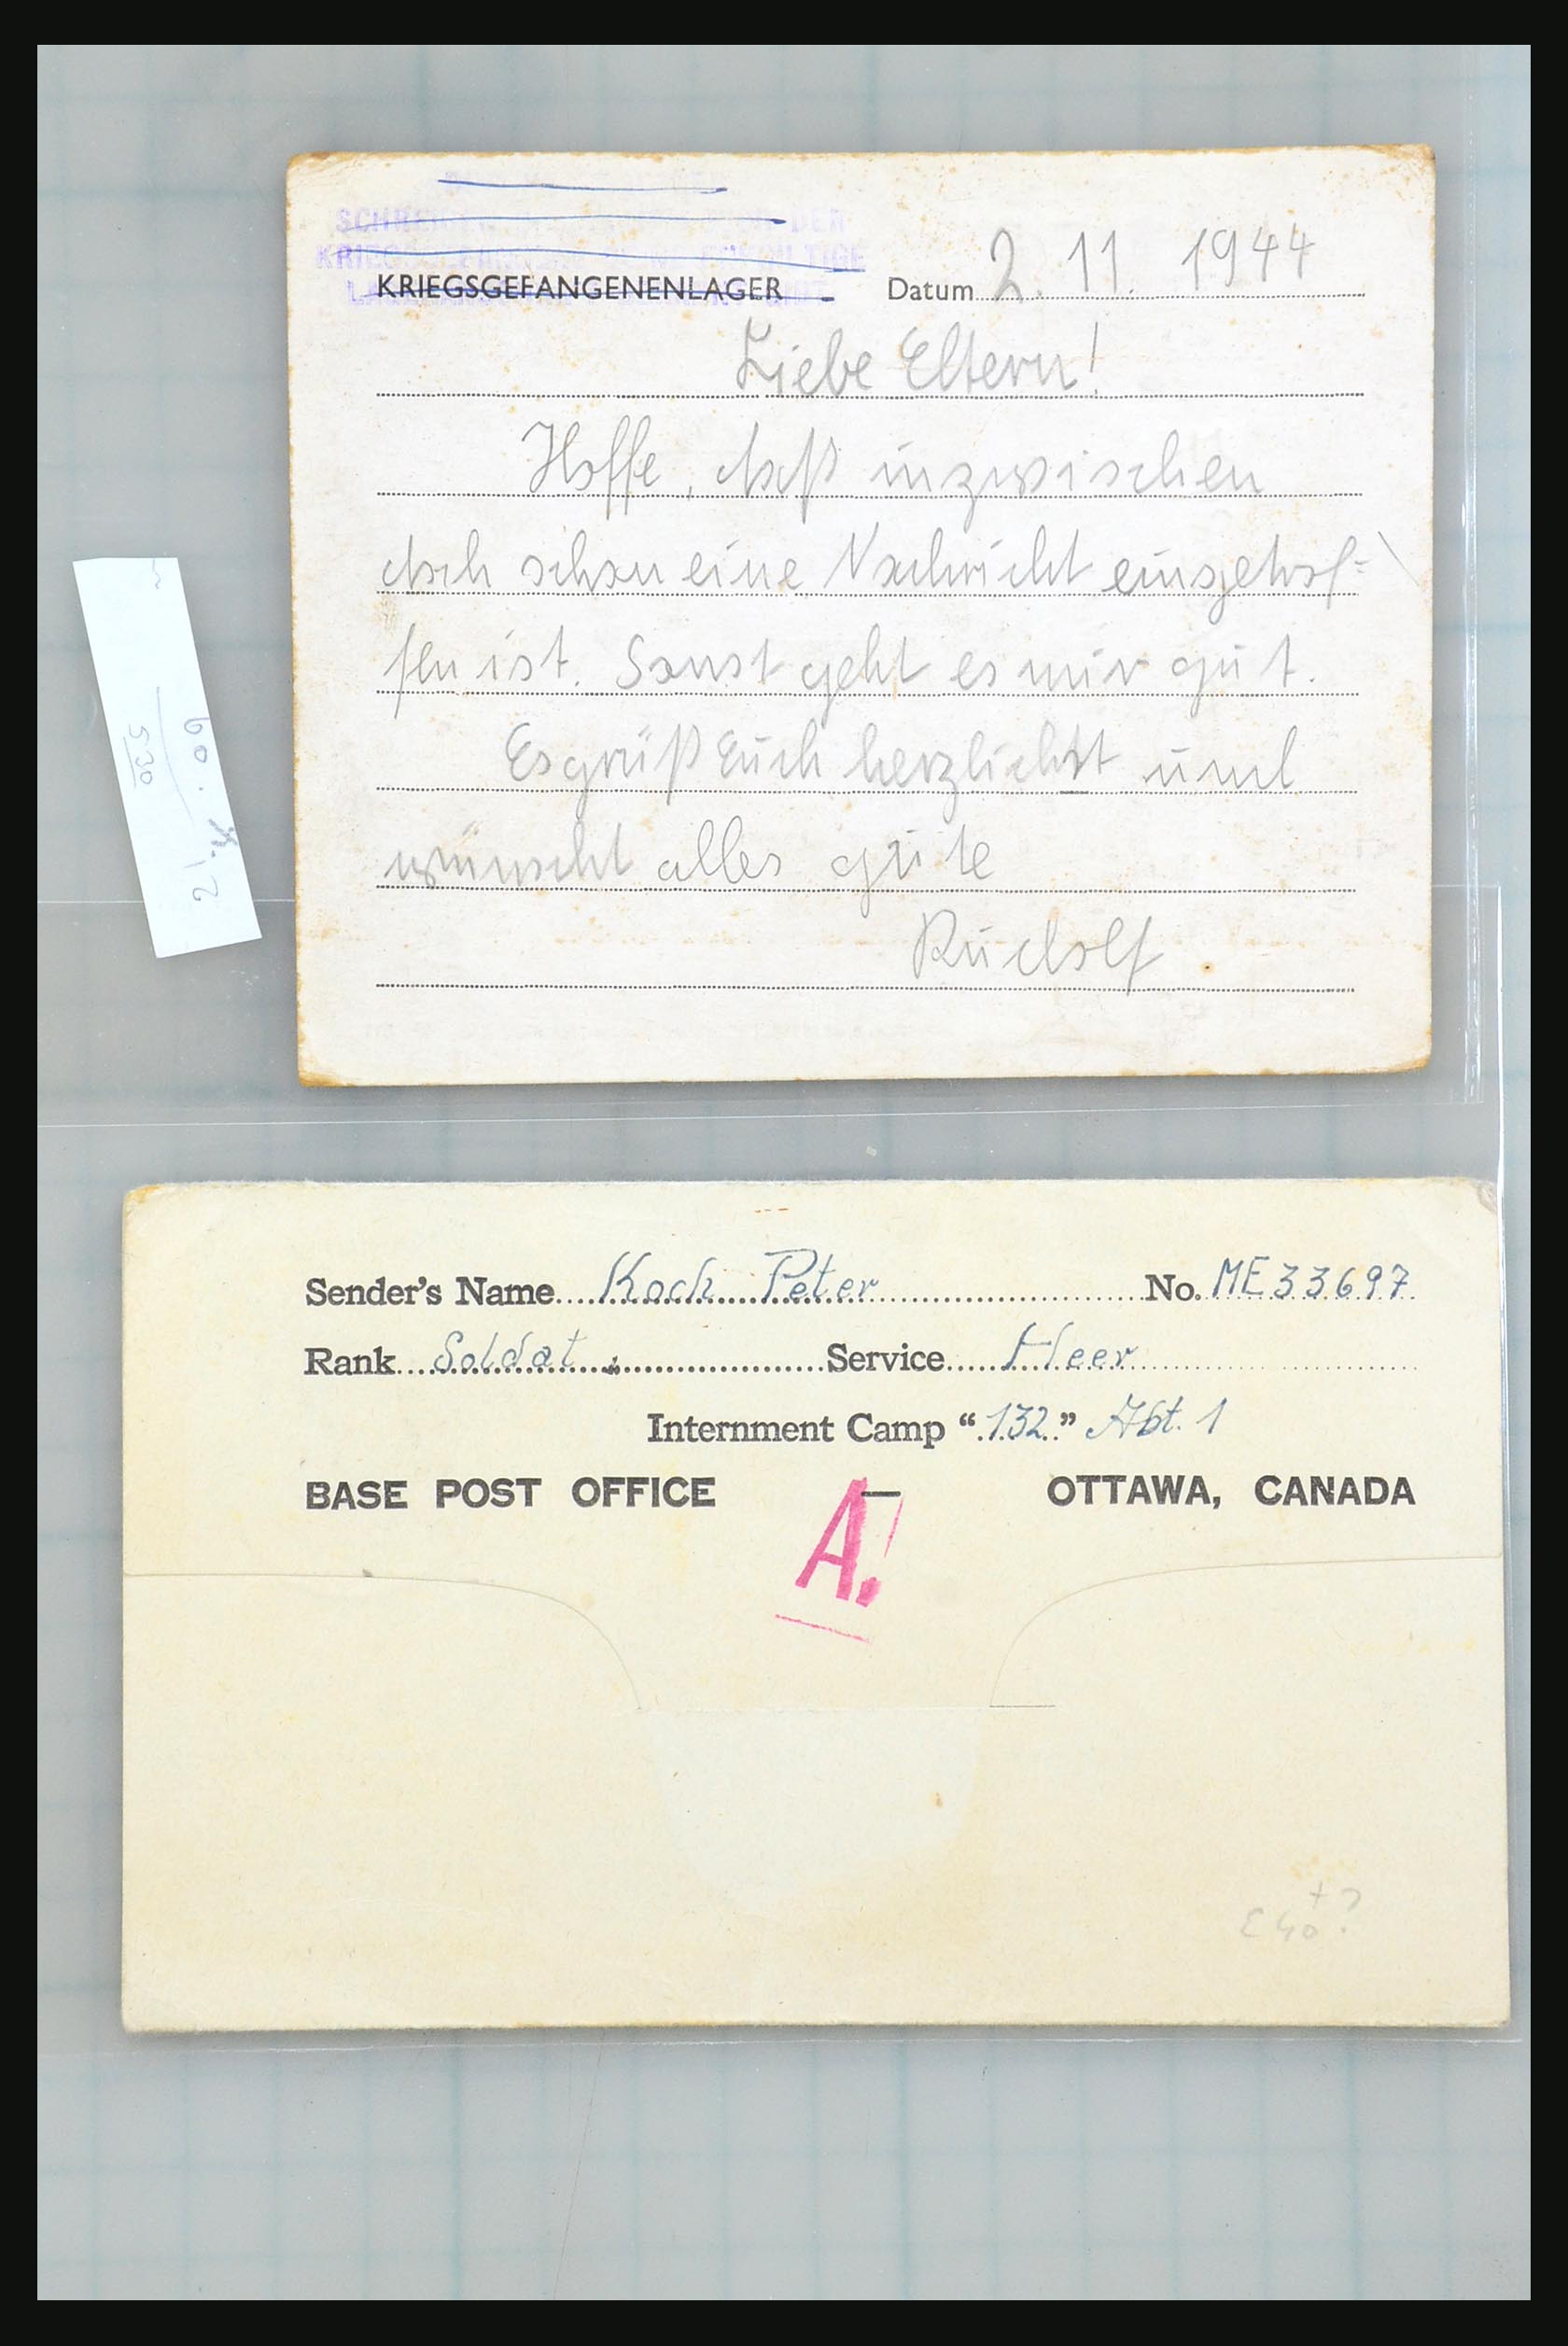 KRIEGSGEFANGENENLAGER Datum 2. 11. 1944
Liebe Eltern!
Hoffe, daß inzwischen
doch schon eine Nachricht eingetrof-
fen ist. Sonst geht es mir gut.
Es grüßt Euch herzlichst und
wünscht alles gute
Rudolf
5 30
Sender's Name Koch Peter No. ME 33697
Rank Soldat Service Heer
Internment Camp "132" Abt. 1
BASE POST OFFICE — OTTAWA, CANADA
A.